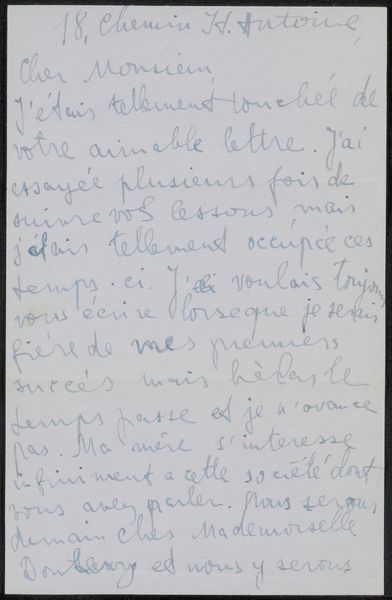 18, Chemin St. Antoine,
Cher Monsieur,
J'étais tellement touchée de
votre aimable lettre. J'ai
essayée plusieurs fois de
suivre vos lessons mais
j'étais tellement occupée ces
temps-ci. J' voulais toujours
vous écrire lorseque je serais
fière de mes premiers
succés mais hèlas le
temps passe et je n'avance
pas. Ma mère s'interesse
infiniment a cette société dont
vous avez parler. Nous serons
demain ches Mademoiselle
et nous y serons